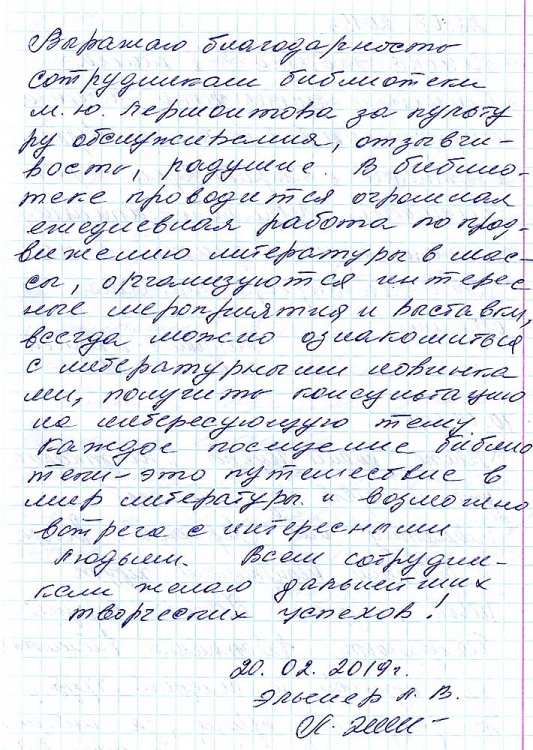 Выражаю благодарность
сотрудникам библиотеки
М.Ю. Лермонтова за культу
ру обслуживания, отзывчи-
вость, радушие. В библио-
теке проводится огромная
ежедневная работа по прод-
вижению литературы в мас-
сы, организуются интерес
ные мероприятия и выставки,
всегда можно ознакомиться
с литературными новинка
ми, получить консультацию
на интересующую тему.
Каждое посещение библио
теки - это путешествие в
мир литературы и возможно
встреча с интересными
людьми. Всем сотрудни-
кам желаю дальнейших
творческих успехов!
20.02.2019г.
Эльснер Л. В.